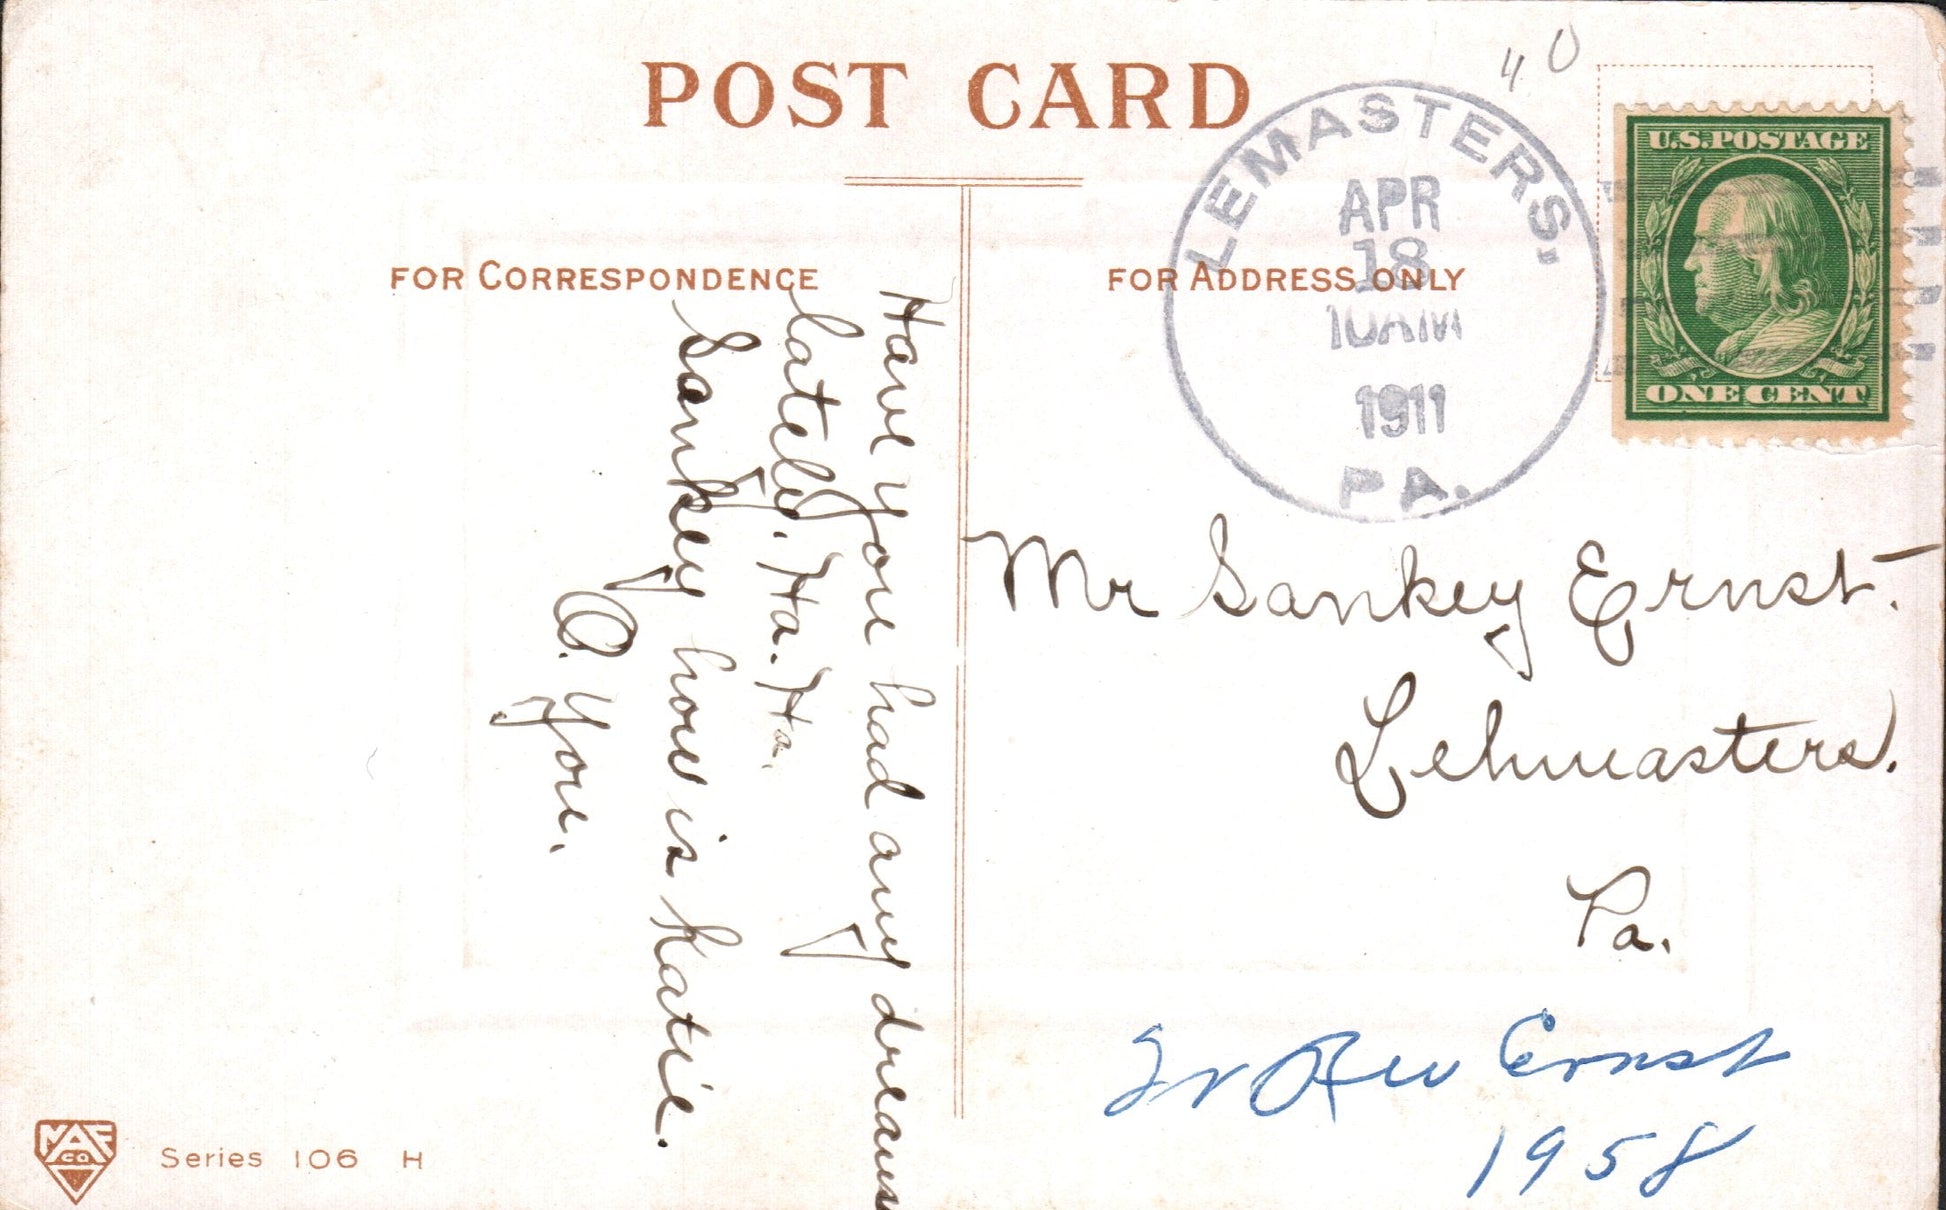 POST CARD
FOR CORRESPONDENCE
FOR ADDRESS ONLY
LEMASTERS,
APR
18
10AM
1911
PA.
40
U.S. POSTAGE
ONE CENT
Have you had any dreams
lately. Ha. Ha.
Sankey how is Katie.
O. You.
Mr Sankey Ernst.
Lehmasters.
Pa.
Ernst
1958
MAF
CO.
Series 106 H